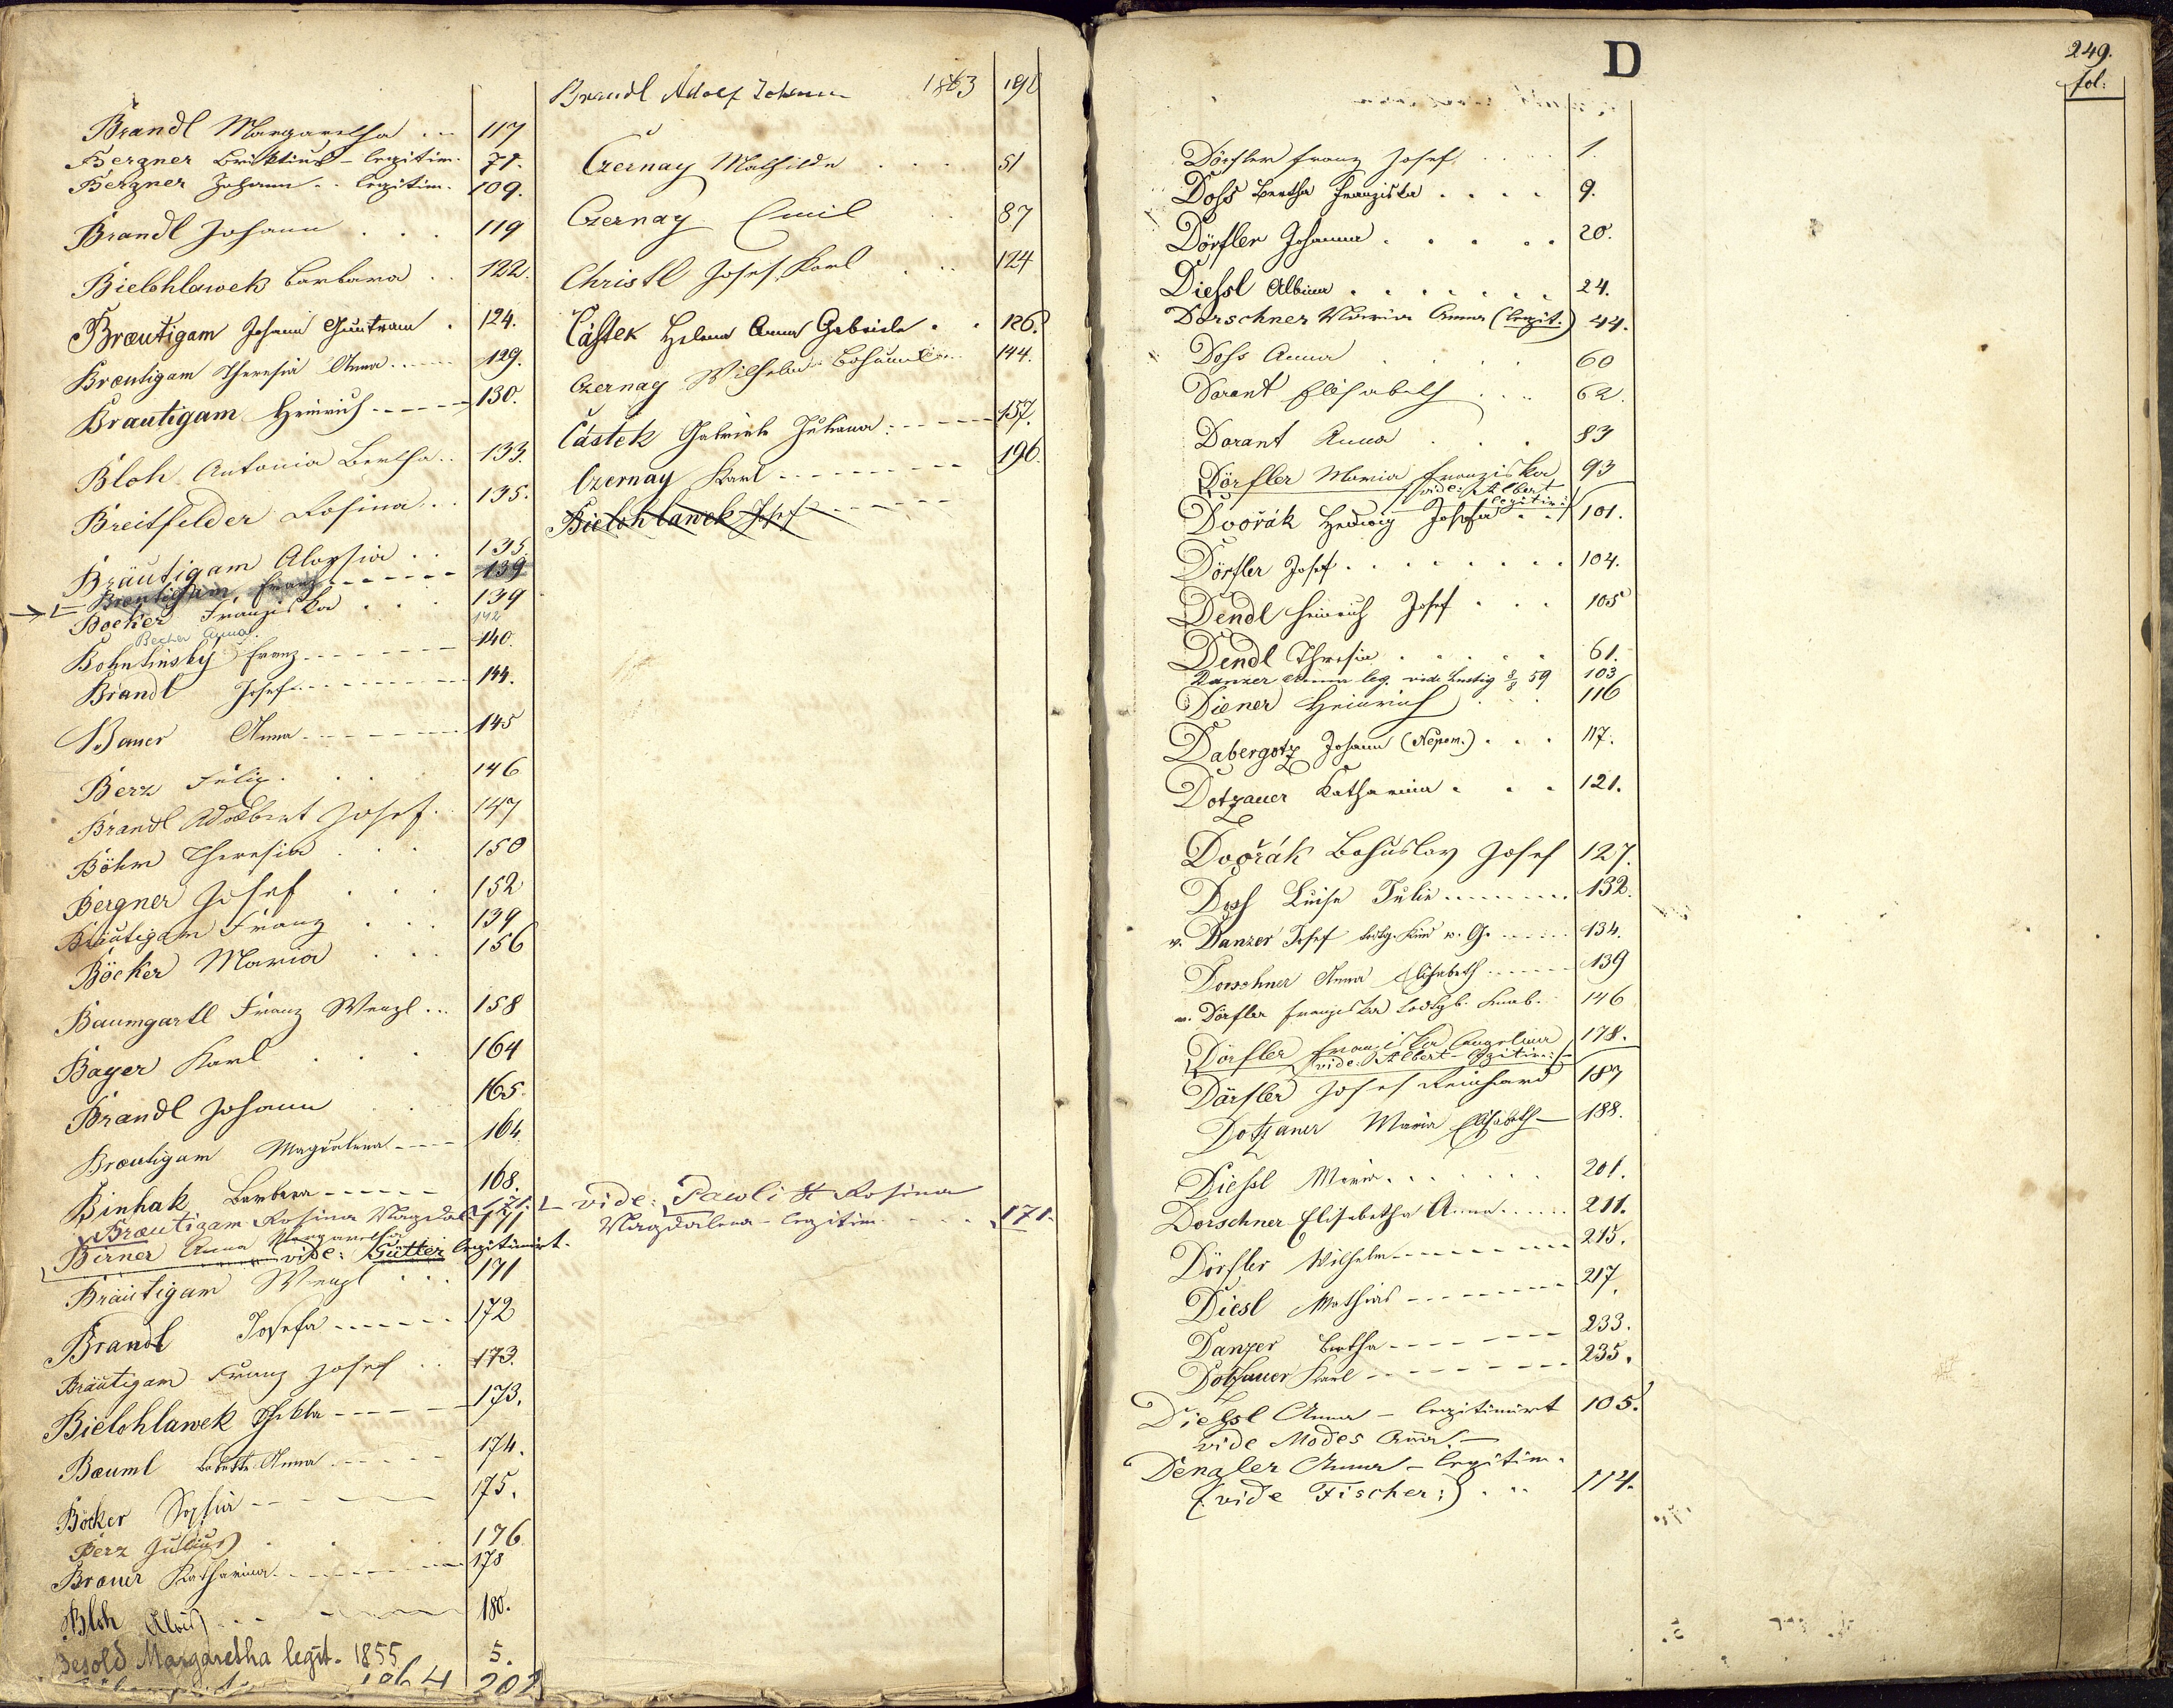 Brandl Margaretha .. 117
Bergner Briktius - legitim. 71.
Bergner Johann .. legitim. 109.
Brandl Johann . . . 119
Bielohlawek Barbara . . 122.
Bræutigam Johann Guntram . 124.
Bræutigam Theresia Anna ..... 129.
Brautigam Heinrich ----- 130.
Bloh Antonia Bertha .. 133.
Breitfelder Rosina . . 135.
Bräutigam Aloysia . . 135.
Bræutigam Franz ------ 139
Böcker Franziska . . . 139
Becher Anna 142
Bohntinsky Franz ------- 140.
Brandl Josef --------- 144.
Bauer Anna -------- 145
Berz Felix . . . . 146
Brandl Adalbert Josef . 147
Böhm Theresia . . . 150
Bergner Josef . . . 152
Bräutigam Franz . . . 139
Böcker Maria . . . 156
Baumgartl Franz Wenzl ... 158
Bayer Karl . . . 164
Brandl Johann . . 165.
Bræutigam Magdalena ---- 164.
Binhak Barbara ----- 168.
Bræutigam Rosina Magdal. 171.
Birner Anna Margaretha 171
vide: Gütter legitimirt.
Bräutigam Wenzl . . . 171
Brandl Josefa ------ 172
Bräutigam Franz Josef . . 173.
Bielohlawek Thekla ----- 173.
Bæuml Babette Anna ----- 174.
Böcker Sofia -- -- 175.
Berz Julius . . . 176
Brauer Katharina --------- 178
Bloh Alois --- 180.
Besold Margaretha legit. 1855 5.
1864 202
Brandl Adolf Johann 1863 190
Czernay Mathilde . . . 51
Czernay Emil . . 87
Christl Josef Karl . . . 124
Částek Helena Anna Gabriele . . 126.
Czernay Wilhelm Bohumil ... 144.
Částek Gabriele Juliana ----- 157.
Czernay Karl --------- 196.
Bielohlawek Josef ------
vide: Pawlik Rosina
Magdalena - legitim. . . . . 171.
D
249.
fol:
Dörfler Franz Josef . . . . 1.
Doss Bertha Franziska . . . . 9.
Dörfler Johanna . . . . . 20.
Diessl Albina . . . . . . . 24.
Dorschner Maria Anna (legit.) 44.
Doss Anna . . . . 60
Dorant Elisabeth . . . 62.
Dorant Anna . . . 83
Dörfler Maria Franziska 93
vide: Albert legitim:
Dvořák Hedwig Josefa . . 101.
Dörfler Josef . . . . . . . . 104.
Dendl Heinrich Josef . . . 105
Dendl Theresia . . . . . . 61.
Danzer Anna leg. vide Lustig 8/8 59 103
Diener Heinrich . . . 116
Dabergotz Johann (Nepom.) . . . 117.
Dotzauer Katharina . . . 121.
Dvořák Bohuslav Josef 127.
Doss Luise Julie ......... 132.
v. Danzer Josef todtg. Kind v. G. ...... 134.
Dorschner Anna Elisabeth ....... 139
v. Dörfler Franziska todtgb. Knab. 146
Dörfler Franziska Angelina 178.
vide: Albert - legitim:
Dörfler Josef Reinhard 187
Dotzauer Maria Elisabeth - 188.
Diessl Maria . . . . . . 201.
Dorschner Elisabetha Anna ...... 211.
Dörfler Wilhelm --------- 215.
Diesl Mathias -------- 217.
Danzer Bertha -------- 233.
Dotzauer Karl --------- 235.
Diessl Anna - legitimirt 105.
vide Modes Anna. -
Dengler Anna - legitim.
(: vide Fischer :) . . . 114.